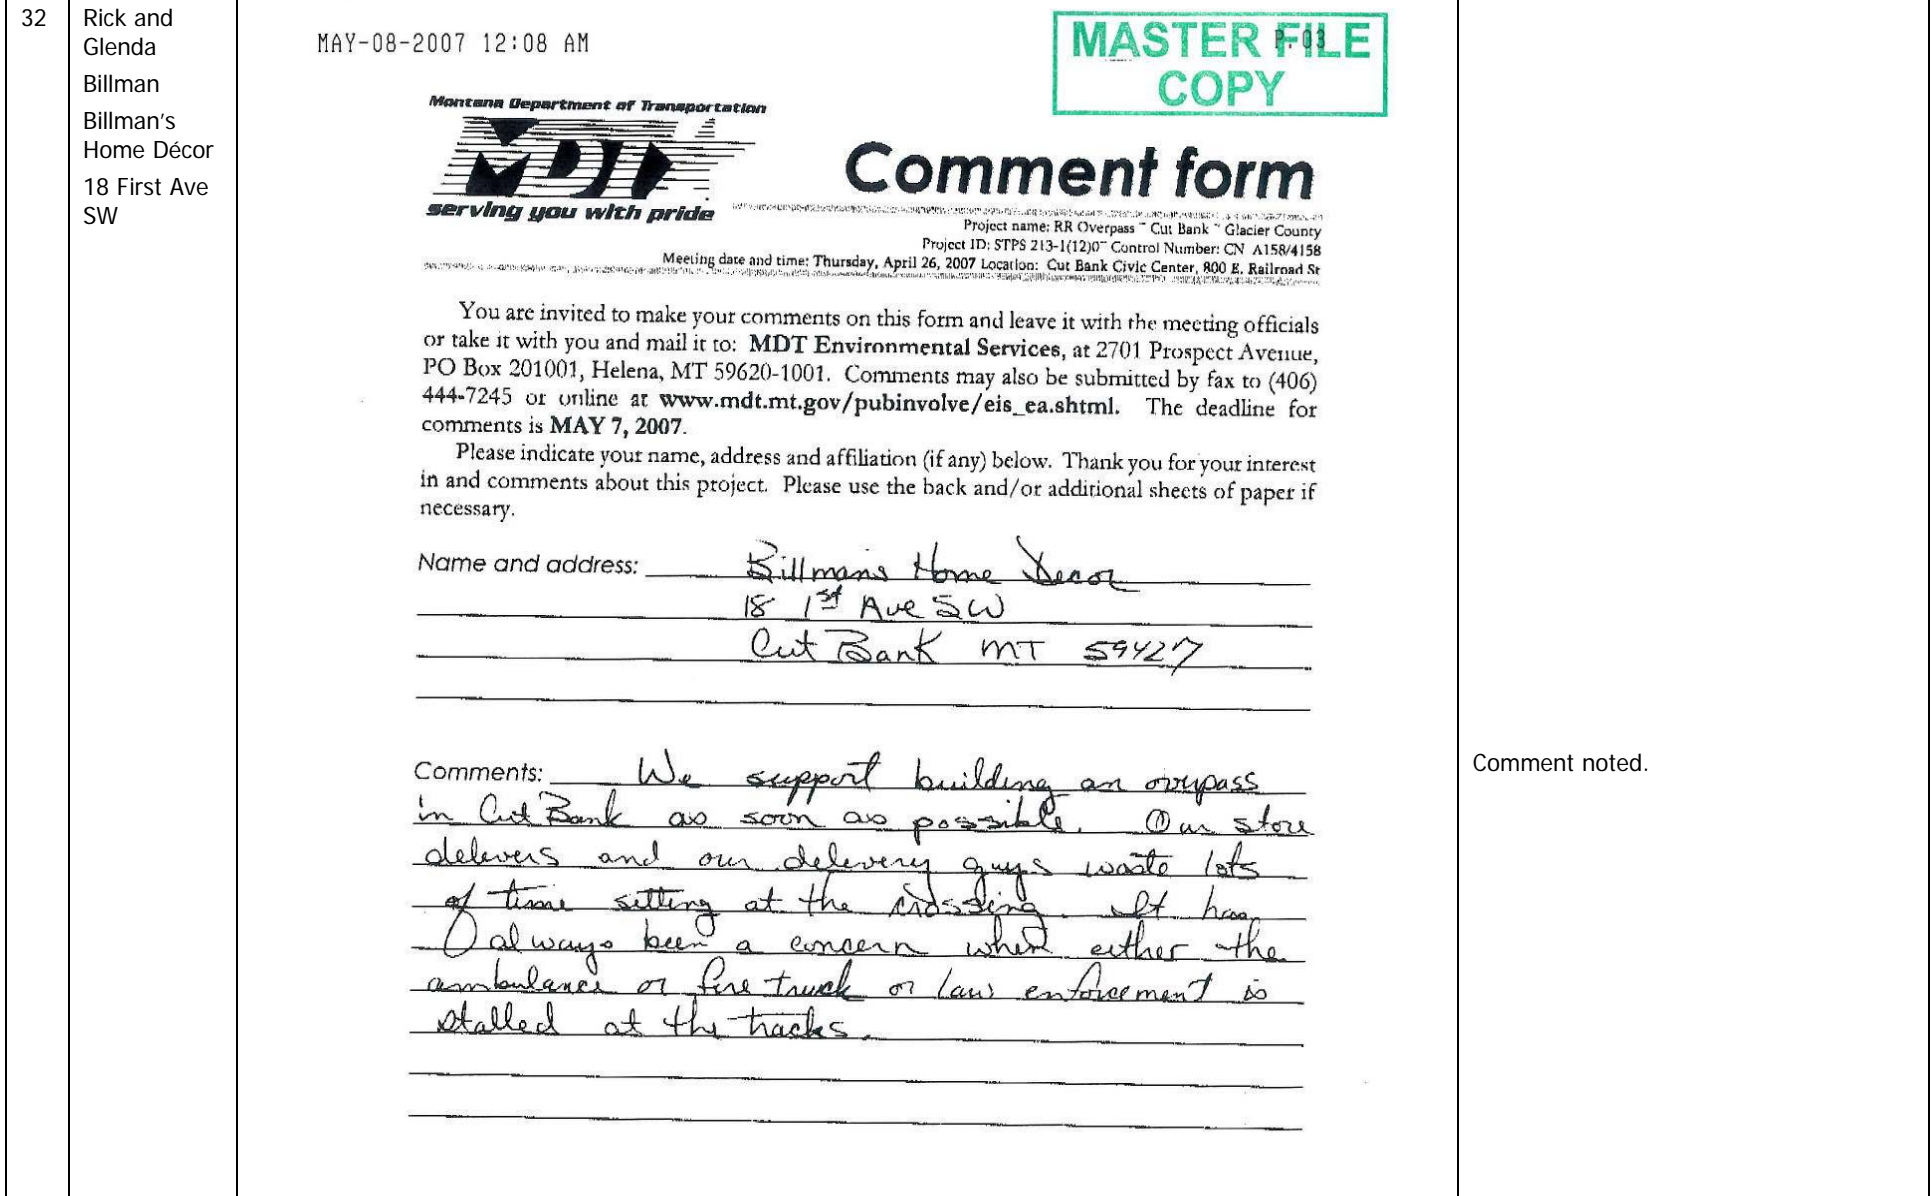 32
Rick and
Glenda
Billman
Billman's
Home Décor
18 First Ave
SW
MAY-08-2007 12:08 AM
P.03
MASTER FILE
COPY
Montana Department of Transportation
MDT
serving you with pride
Comment form
Project name: RR Overpass ~ Cut Bank ~ Glacier County
Project ID: STPS 213-1(12)0~ Control Number: CN A158/4158
Meeting date and time: Thursday, April 26, 2007 Location: Cut Bank Civic Center, 800 E. Railroad St
You are invited to make your comments on this form and leave it with the meeting officials
or take it with you and mail it to: MDT Environmental Services, at 2701 Prospect Avenue,
PO Box 201001, Helena, MT 59620-1001. Comments may also be submitted by fax to (406)
444-7245 or online at www.mdt.mt.gov/pubinvolve/eis_ea.shtml. The deadline for
comments is MAY 7, 2007.
Please indicate your name, address and affiliation (if any) below. Thank you for your interest
in and comments about this project. Please use the back and/or additional sheets of paper if
necessary.
Name and address: Billman's Home Decor
18 1st Ave SW
Cut Bank MT 59427
Comments: We support building an overpass
in Cut Bank as soon as possible. Our store
delevers and our delevery guys waste lots
of time sitting at the crossing. It has
always been a concern when either the
ambulance or fire truck or law enforcement is
stalled at the tracks.
Comment noted.